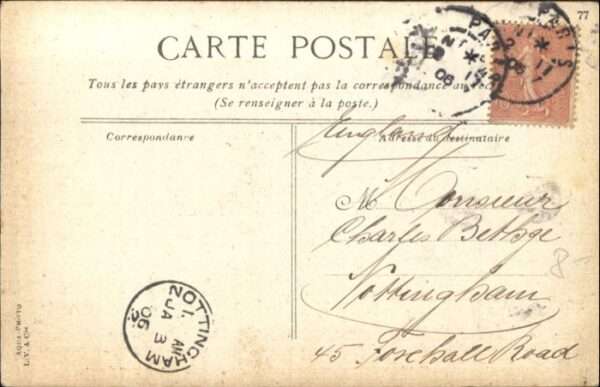 77
CARTE POSTALE
Tous les pays étrangers n'acceptent pas la correspondance au
(Se renseigner à la poste.)
Correspondance
Adresse du destinataire
England
M Monsieur
Charles Bethge
Nottingham
45 Foxhall Road
8-
PARIS
PARIS
NOTTINGHAM
1. AM
JA 3
06
AQUA-PHOTO
L.V. & Cie